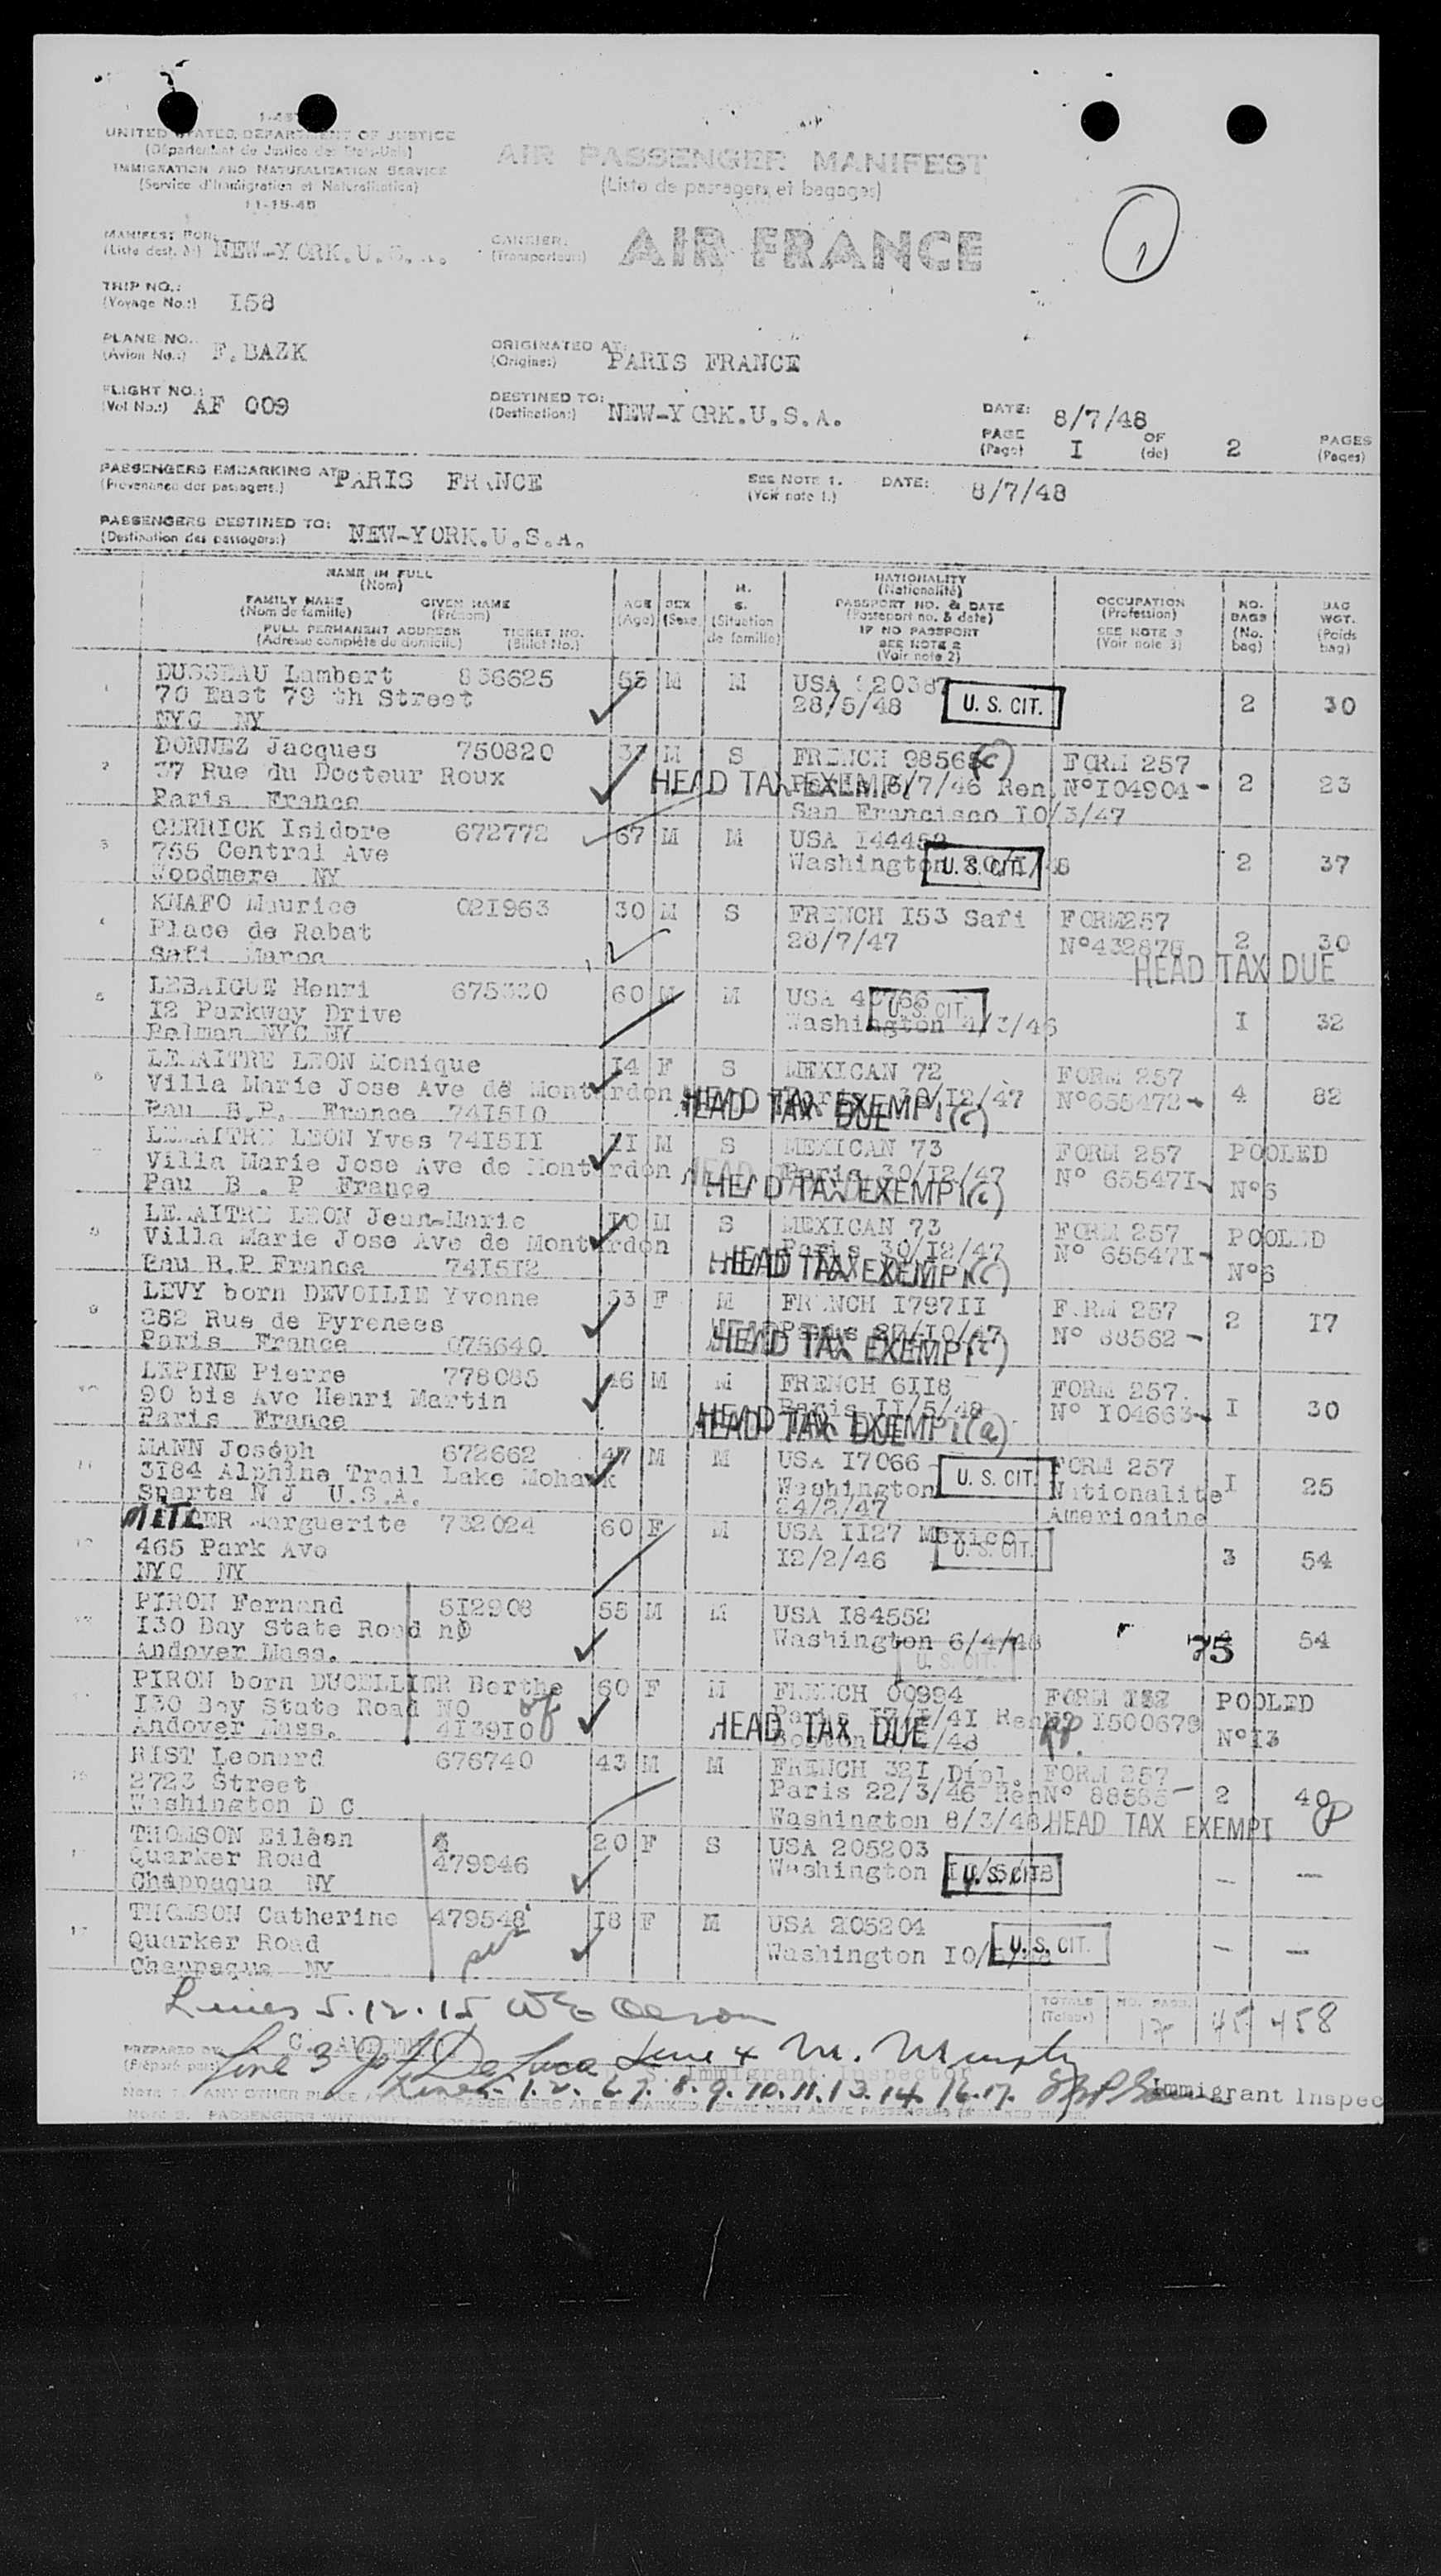 UNITED STATES DEPARTMENT OF JUSTICE
(Département de Justice des Etats-Unis)
IMMIGRATION AND NATURALIZATION SERVICE
(Service d'Immigration et Naturalisation)
11-15-45
AIR PASSENGER MANIFEST
(Liste de passagers et bagages)
1
MANIFEST FOR:
(Liste dest. à:) NEW-YORK.U.S.A.
CARRIER:
(Transporteur:) AIR FRANCE
TRIP NO.:
(Voyage No.:) I58
PLANE NO.:
(Avion No.:) F.BAZK
ORIGINATED AT:
(Origine:) PARIS FRANCE
FLIGHT NO.:
(Vol No.:) AF 009
DESTINED TO:
(Destination:) NEW-YORK.U.S.A.
DATE: 8/7/48
PAGE I OF 2 PAGES
(Page) (de) (Pages)
PASSENGERS EMBARKING AT: PARIS FRANCE
(Provenance des passagers:)
SEE NOTE 1. DATE: 8/7/48
(Voir note 1.)
PASSENGERS DESTINED TO: NEW-YORK.U.S.A.
(Destination des passagers:)
NAME IN FULL
(Nom)
FAMILY NAME GIVEN NAME
(Nom de famille) (Prénom)
FULL PERMANENT ADDRESS TICKET NO.
(Adresse complète du domicile) (Billet No.)
AGE
(Age)
SEX
(Sexe)
M.
S.
(Situation
de famille)
NATIONALITY
(Nationalité)
PASSPORT NO. & DATE
(Passeport no. & date)
IF NO PASSPORT
SEE NOTE 2
(Voir note 2)
OCCUPATION
(Profession)
SEE NOTE 3
(Voir note 3)
NO.
BAGS
(No.
bag)
BAG
WGT.
(Poids
bag)
1 DUSSEAU Lambert 836625 55 M M USA
70 East 79 th Street 28/5/48 U. S. CIT. 2 30
NYC NY
2 DONNEZ Jacques 750820 M S FRENCH (c) FORM 257
37 Rue du Docteur Roux HEAD TAX EXEMPT /7/46 Ren N°I04904- 2 23
Paris France San Francisco I0/3/47
3 GERRICK Isidore 672772 67 M M USA I44452
755 Central Ave Washington U. S. CIT. 2 37
Woodmere NY
4 KNAFO Maurice 02I963 30 M S FRENCH I53 Safi FORM257
Place de Rabat 28/7/47 N°432878 2 30
Safi Maroc HEAD TAX DUE
5 LEBAIGUE Henri 675330 60 M M USA
I2 Parkway Drive Washington 4/3/46 U. S. CIT. I 32
Pelman NYC NY
6 LEMAITRE LEON Monique I4 F S MEXICAN 72 FORM 257
Villa Marie Jose Ave de Montardon /I2/47 N°655472- 4 82
Pau B.P. France 74I5I0 HEAD TAX EXEMPT (c) HEAD TAX DUE
7 LEMAITRE LEON Yves 74I5II II M S MEXICAN 73 FORM 257 POOLED
Villa Marie Jose Ave de Montardon Paris 30/I2/47 N° 65547I N°6
Pau B . P France HEAD TAX EXEMPT (c)
8 LEMAITRE LEON Jean-Marie I0 M S MEXICAN 73 FORM 257 POOLED
Villa Marie Jose Ave de Montardon Paris 30/I2/47 N° 65547I- N°6
Pau B.P France 74I5I2 HEAD TAX EXEMPT (c)
9 LEVY born DEVOILIE Yvonne 53 F M FRENCH I797II FORM 257
282 Rue de Pyrenees Paris /I0/47 N° 88562 - 2 I7
Paris France 075640 HEAD TAX EXEMPT (c)
10 LEPINE Pierre 778085 46 M M FRENCH 6II8 FORM 257.
90 bis Ave Henri Martin Paris II/5/48 N° I04663- I 30
Paris France HEAD TAX EXEMPT (a) HEAD TAX DUE
11 MANN Joséph 672662 47 M M USA I7066 FORM 257
3I84 Alphine Trail Lake Mohawk Washington U. S. CIT. Nationalite I 25
Sparta N J U.S.A. 24/2/47 Americaine
12 Marguerite 732024 60 F M USA II27 Mexico
465 Park Ave I2/2/46 U. S. CIT. 3 54
NYC NY
13 PIRON Fernand 5I2908 55 M M USA I84552
I30 Bay State Road Washington 6/4/48 U. S. CIT. 75 54
Andover Mass.
14 PIRON born DUCELLIER Berthe 60 F M FRENCH 00994 FORM POOLED
I30 Bay State Road NO I500679 N°I3
Andover Mass. 4I39I0 HEAD TAX DUE
15 RIST Leonard 676740 43 M M FRENCH 32I Dipl. FORM 257
2723 Street Paris 22/3/46 Ren N° 2 40
Washington D C Washington 8/3/48 HEAD TAX EXEMPT
16 THOMSON Eileen 20 F S USA 205203
Quarker Road 479946 Washington U. S. CIT. — —
Chappaqua NY
17 THOMSON Catherine 479548 I8 F M USA 205204
Quarker Road Washington I0/ U. S. CIT. — —
Chappaqua NY
TOTALS NO. PASS.
(Totaux) 17 45 458
Lines 5.12.15 Olson
PREPARED BY
(Préparé par)
Line 3 De Luca Line 4 M. Murphy
Immigrant Inspector
Lines 1. 2. 6. 7. 8. 9. 10. 11. 13. 14. 16. 17. Immigrant Inspec